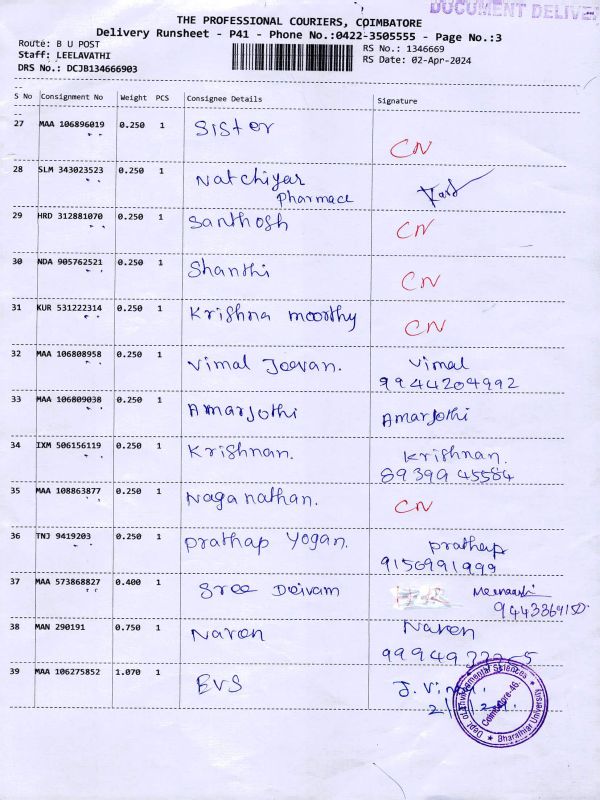 DOCUMENT DELIVER
THE PROFESSIONAL COURIERS, COIMBATORE
Delivery Runsheet - P41 - Phone No.:0422-3505555 - Page No.:3
Route: B U POST
Staff: LEELAVATHI
DRS No.: DCJB134666903
RS No.: 1346669
RS Date: 02-Apr-2024
S No Consignment No Weight PCS Consignee Details Signature
27 MAA 106896019 0.250 1 Sister CN
28 SLM 343023523 0.250 1 Natchiyar
Pharmace
29 HRD 312881070 0.250 1 Santhosh CN
30 NDA 905762521 0.250 1 Shanthi CN
31 KUR 531222314 0.250 1 Krishna moorthy CN
32 MAA 106808958 0.250 1 Vimal Jeevan. Vimal
9944204992
33 MAA 106809038 0.250 1 Amarjothi Amarjothi
34 IXM 506156119 0.250 1 Krishnan. Krishnan.
89399 45584
35 MAA 108863877 0.250 1 Naganathan. CN
36 TNJ 9419203 0.250 1 Prathap Yogan. Prathap
9150991999
37 MAA 573868827 0.400 1 Sree Deivam Meenaakshi
38 MAN 290191 0.750 1 Naren Naren
39 MAA 106275852 1.070 1 EVS
Dept. of Environmental Sciences
Coimbatore-46.
Bharathiar University